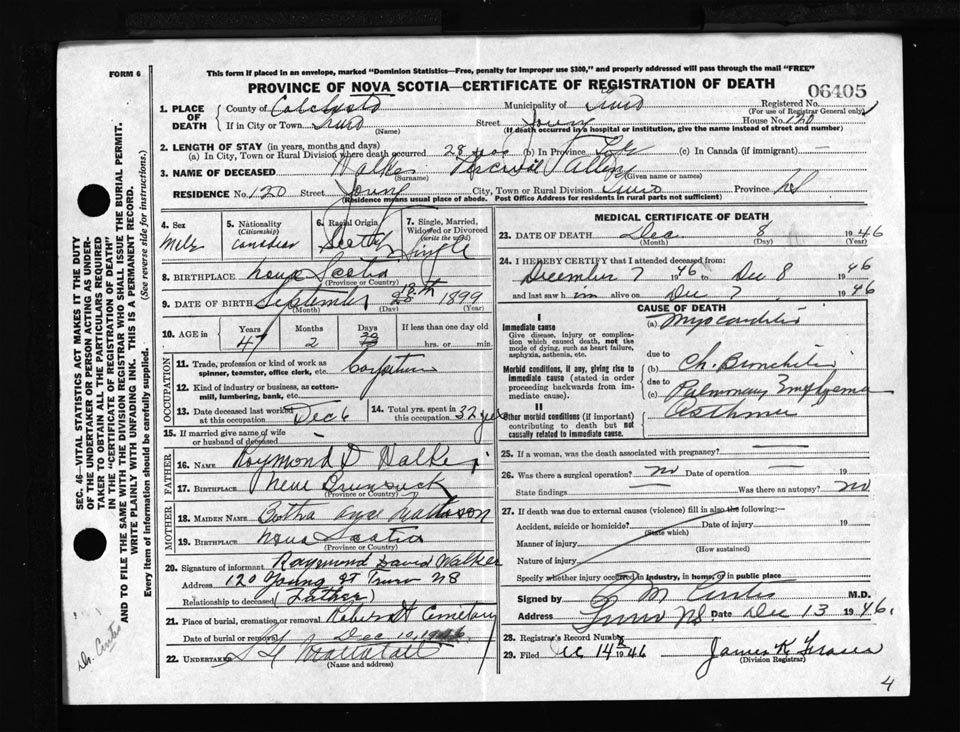 FORM 6
This form if placed in an envelope, marked "Dominion Statistics—Free, penalty for improper use $300," and properly addressed will pass through the mail "FREE"
PROVINCE OF NOVA SCOTIA—CERTIFICATE OF REGISTRATION OF DEATH
06405
1. PLACE OF DEATH County of Colchester Municipality of Truro Registered No.
(For use of Registrar General only)
If in City or Town Truro Street Young House No. 120
(Name) (If death occurred in a hospital or institution, give the name instead of street and number)
2. LENGTH OF STAY (in years, months and days)
(a) In City, Town or Rural Division where death occurred 28 yrs (b) In Province (c) In Canada (if immigrant) —
3. NAME OF DECEASED Walker Percival Allen
(Surname) (Given name or names)
RESIDENCE No. 120 Street Young City, Town or Rural Division Truro Province NS
(Residence means usual place of abode. Post Office Address for residents in rural parts not sufficient)
4. Sex Male
5. Nationality (Citizenship) Canadian
6. Racial Origin Scotch
7. Single, Married, Widowed or Divorced (write the word) Single
8. BIRTHPLACE Nova Scotia
(Province or Country)
9. DATE OF BIRTH September 18th 1899
(Month) (Day) (Year)
10. AGE in Years 47 Months 2 Days If less than one day old
hrs. or min.
OCCUPATION
11. Trade, profession or kind of work as spinner, teamster, office clerk, etc.
12. Kind of industry or business, as cotton-mill, lumbering, bank, etc.
13. Date deceased last worked at this occupation Dec 6
14. Total yrs. spent in this occupation 32 yrs
15. If married give name of wife or husband of deceased
FATHER
16. NAME Raymond D Walker
17. BIRTHPLACE New Brunswick
(Province or Country)
MOTHER
18. MAIDEN NAME Mattason
19. BIRTHPLACE Nova Scotia
(Province or Country)
20. Signature of informant Raymond David Walker
Address 120 Young St Truro NS
Relationship to deceased (Father)
21. Place of burial, cremation or removal Robert Cemetary
Date of burial or removal Dec 10, 1946
22. UNDERTAKER Mattatall
(Name and address)
MEDICAL CERTIFICATE OF DEATH
23. DATE OF DEATH Dec. 8 1946
(Month) (Day) (Year)
24. I HEREBY CERTIFY that I attended deceased from:
December 7 1946 to Dec 8 1946
and last saw him alive on Dec 7 1946
CAUSE OF DEATH
I
Immediate cause
Give disease, injury or complication which caused death, not the mode of dying, such as heart failure, asphyxia, asthenia, etc.
(a) Myocarditis
due to
Morbid conditions, if any, giving rise to immediate cause (stated in order proceeding backwards from immediate cause).
(b) Ch. Bronchitis
due to
(c) Pulmonary Emphysema
II
Asthma
Other morbid conditions (if important) contributing to death but not causally related to immediate cause.
25. If a woman, was the death associated with pregnancy? —
26. Was there a surgical operation? no Date of operation — 19
State findings — Was there an autopsy? no
27. If death was due to external causes (violence) fill in also the following:—
Accident, suicide or homicide? Date of injury 19
(State which)
Manner of injury
(How sustained)
Nature of injury
Specify whether injury occurred in industry, in home, or in public place
Signed by M Curtis M.D.
Address Truro NS. Date Dec 13 1946.
28. Registrar's Record Number
29. Filed Dec 14 1946 James K Fraser
(Division Registrar)
4
SEC. 46—VITAL STATISTICS ACT MAKES IT THE DUTY
OF THE UNDERTAKER OR PERSON ACTING AS UNDER-
TAKER TO OBTAIN ALL THE PARTICULARS REQUIRED
IN THE "CERTIFICATE OF REGISTRATION OF DEATH"
AND TO FILE THE SAME WITH THE DIVISION REGISTRAR WHO SHALL ISSUE THE BURIAL PERMIT.
WRITE PLAINLY WITH UNFADING INK. THIS IS A PERMANENT RECORD.
Every item of information should be carefully supplied. (See reverse side for instructions.)
Dr. Curtis